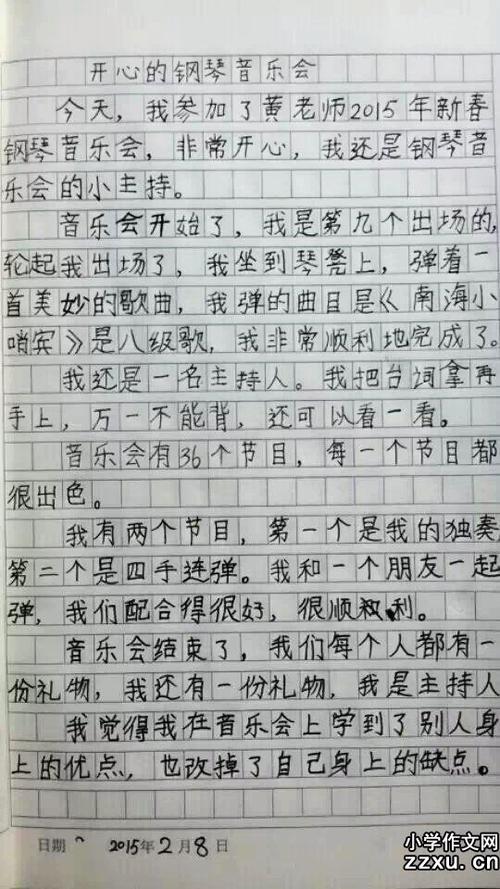 开心的钢琴音乐会
今天，我参加了黄老师2015年新春
钢琴音乐会，非常开心，我还是钢琴音
乐会的小主持。
音乐会开始了，我是第九个出场的，
轮起我出场了，我坐到琴凳上，弹着一
首美妙的歌曲，我弹的曲目是《南海小
哨宾》是八级歌，我非常顺利地完成了。
我还是一名主持人。我把台词拿再
手上，万一不能背，还可以看一看。
音乐会有36个节目，每一个节目都
很出色。
我有两个节目，第一个是我的独奏
第二个是四手连弹。我和一个朋友一起
弹，我们配合得很好，很顺利。
音乐会结束了，我们每个人都有一
份礼物，我还有一份礼物，我是主持人
我觉得我在音乐会上学到了别人身
上的优点，也改掉了自己身上的缺点。
日期 2015年2月8日
小学作文网
zzxu.cn